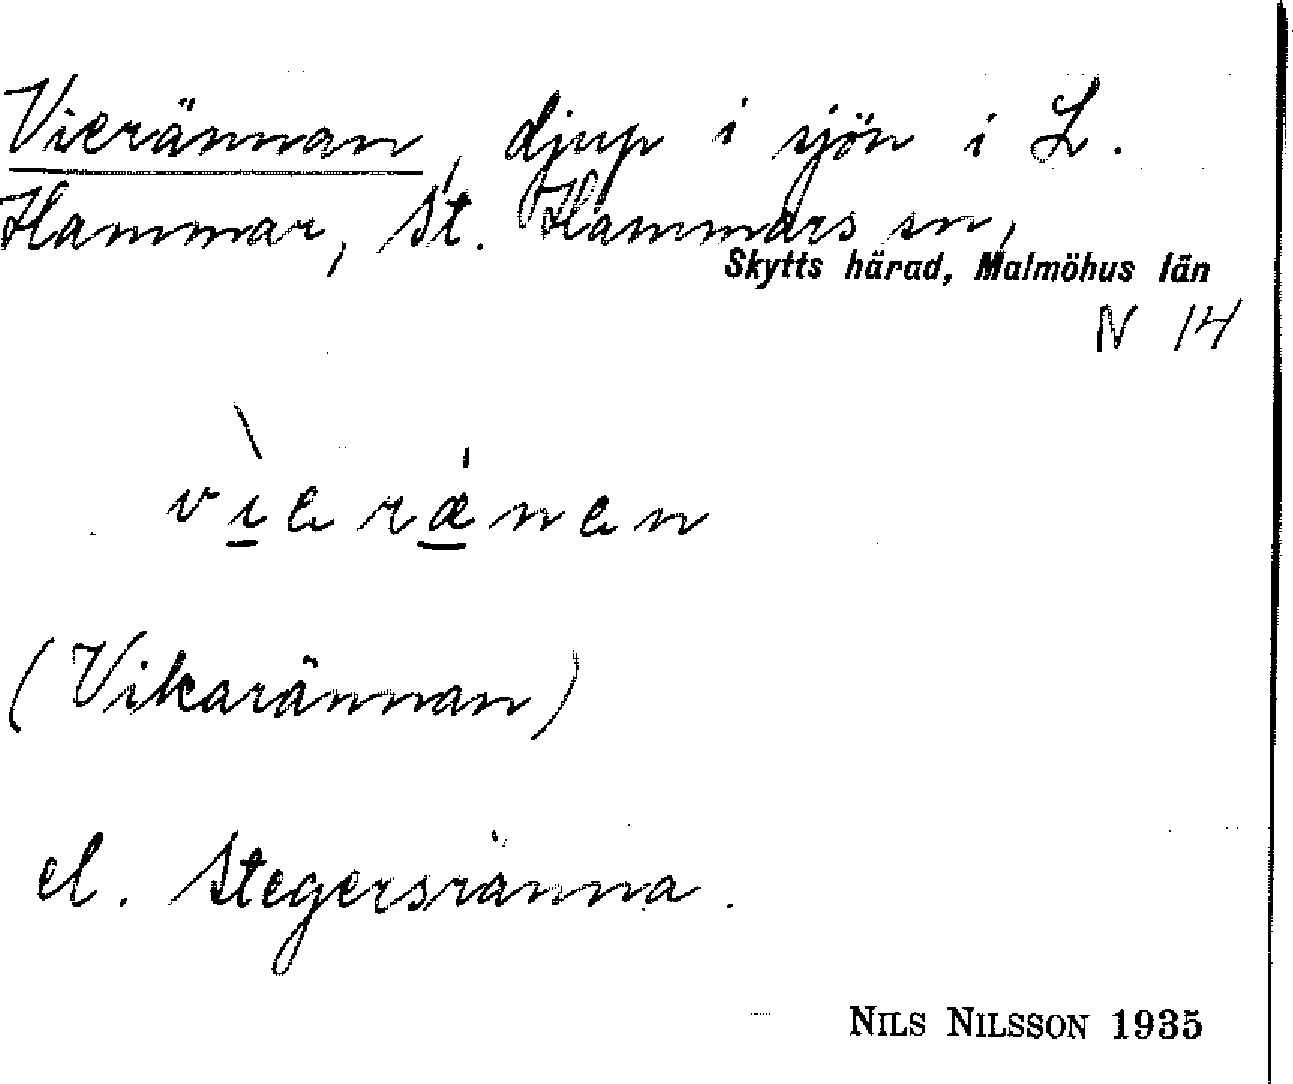 Vierännan, djup i sjön i L.
Hammar, St. Hammars sn,
Skytts härad, Malmöhus län
N 14
vìeræ̀nen
(Vikarännan)
el. Stegersränna.
NILS NILSSON 1935